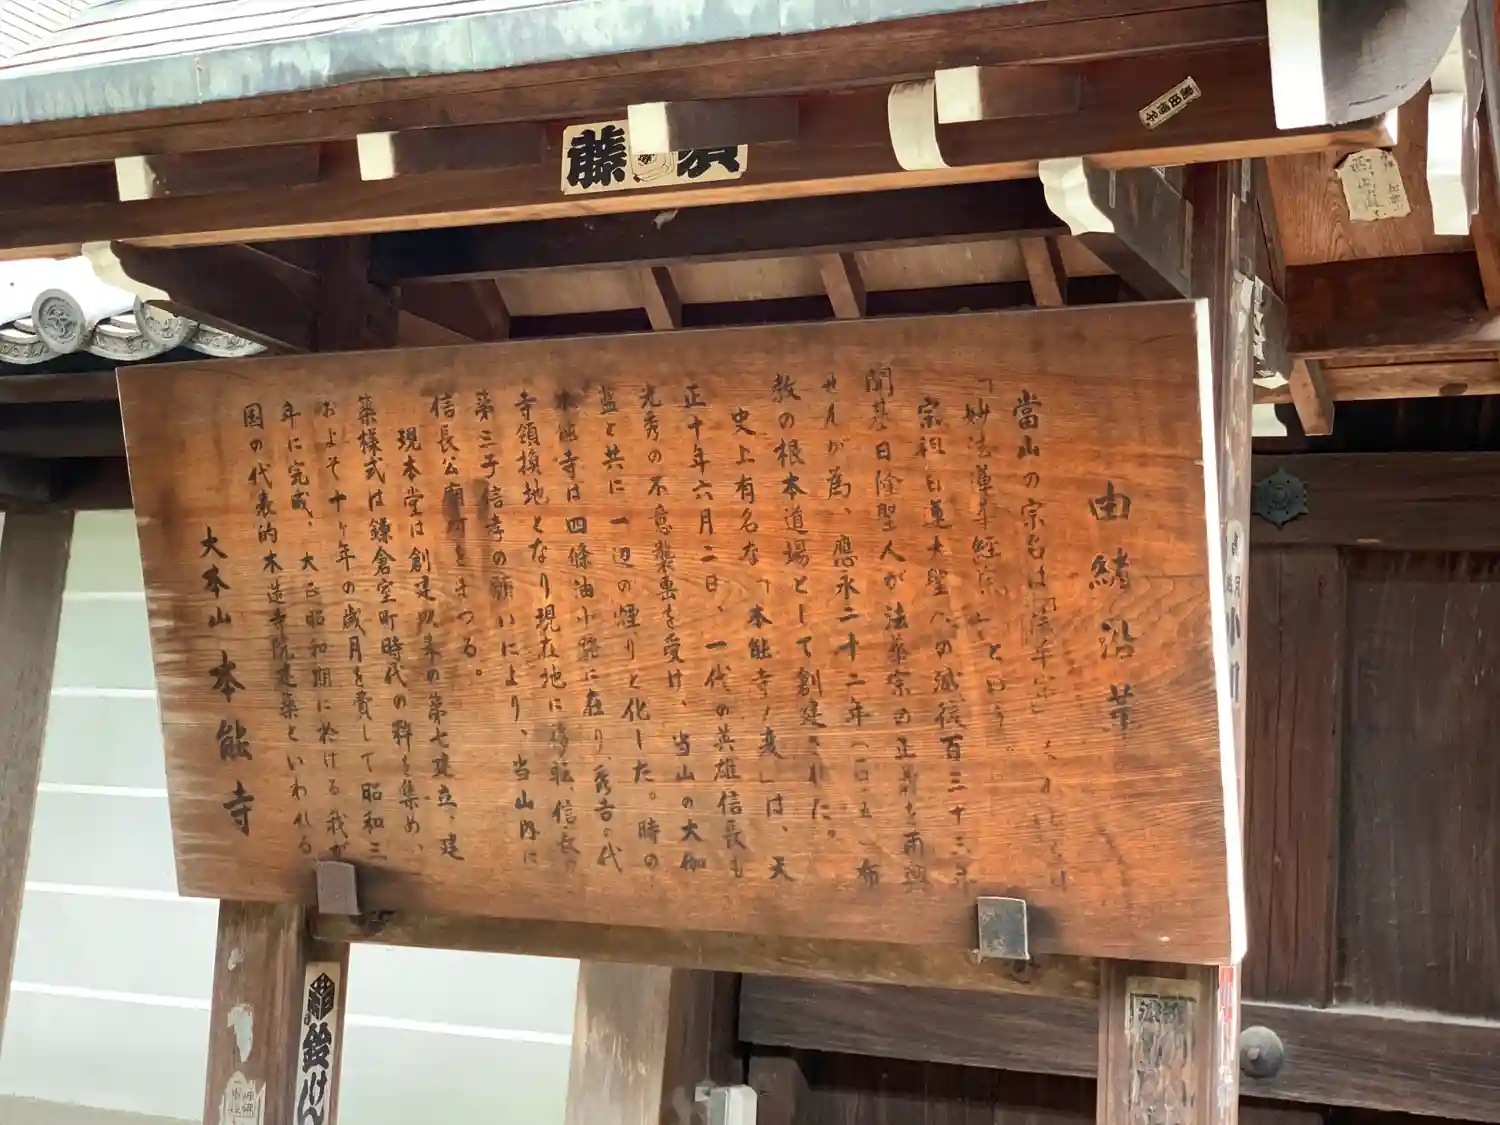 由緒沿革
當山の宗名は
「妙法蓮華経 」という
宗祖日蓮大聖人の滅後百三十三年
開基日隆聖人が法華宗の正義を再興
せんが為、應永二十二年(一四一五)布
教の根本道場として創建された。
史上有名な「本能寺ノ変」は、天
正十年六月二日、一代の英雄信長も
光秀の不意襲撃を受け、当山の大伽
藍と共に一辺の煙りと化した。時の
本能寺は四條油小路に在り、秀吉
寺領換地となり現在地に移転、信長の
第三子信孝の願いにより、当山内に
信長公廟所をまつる。
現本堂は創建以来の第七建立、建
築様式は鎌倉室町時代の粋を集め、
およそ十ヶ年の歳月を費して昭和三
年に完成、大正昭和期に於ける我が
国の代表的木造寺院建築といわれる
大本山 本能寺
藤
鈴けん
小川